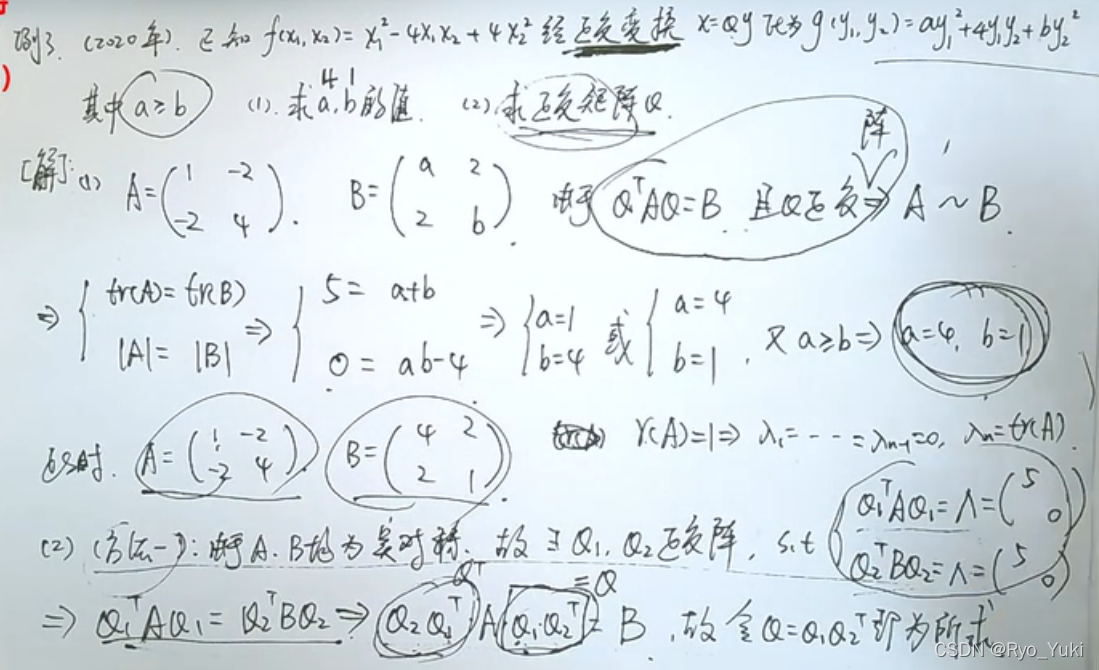 例3. (2020年). 已知 f(x₁, x₂) = x₁² - 4x₁x₂ + 4x₂² 经正交变换 x=Qy 化为 g(y₁, y₂) = ay₁² + 4y₁y₂ + by₂²
)
4 1
其中 a≥b (1). 求 a, b 的值. (2) 求正交矩阵Q.
阵
[解]: (1) A = (1 -2; -2 4). B = (a 2; 2 b). 由于 QᵀAQ = B 且Q正交 ⇒ A ~ B.
⇒ { tr(A) = tr(B) |A| = |B| ⇒ { 5 = a+b 0 = ab-4 ⇒ { a=1 b=4 或 { a=4 b=1, 又 a≥b ⇒ a=4, b=1
此时. A = (1 -2; -2 4). B = (4 2; 2 1). r(A)=1 ⇒ λ₁ = --- = λₙ₋₁ = 0, λₙ = tr(A).
(2) (方法一): 由于 A. B均为实对称. 故 ∃ Q₁, Q₂正交阵, s.t Q₁ᵀAQ₁ = Λ = (5 0) Q₂ᵀBQ₂ = Λ = (5 0)
Qᵀ ≡Q
⇒ Q₁ᵀAQ₁ = Q₂ᵀBQ₂ ⇒ Q₂Q₁ᵀ A Q₁·Q₂ᵀ = B, 故令 Q=Q₁Q₂ᵀ 即为所求
CSDN @Ryo_Yuki